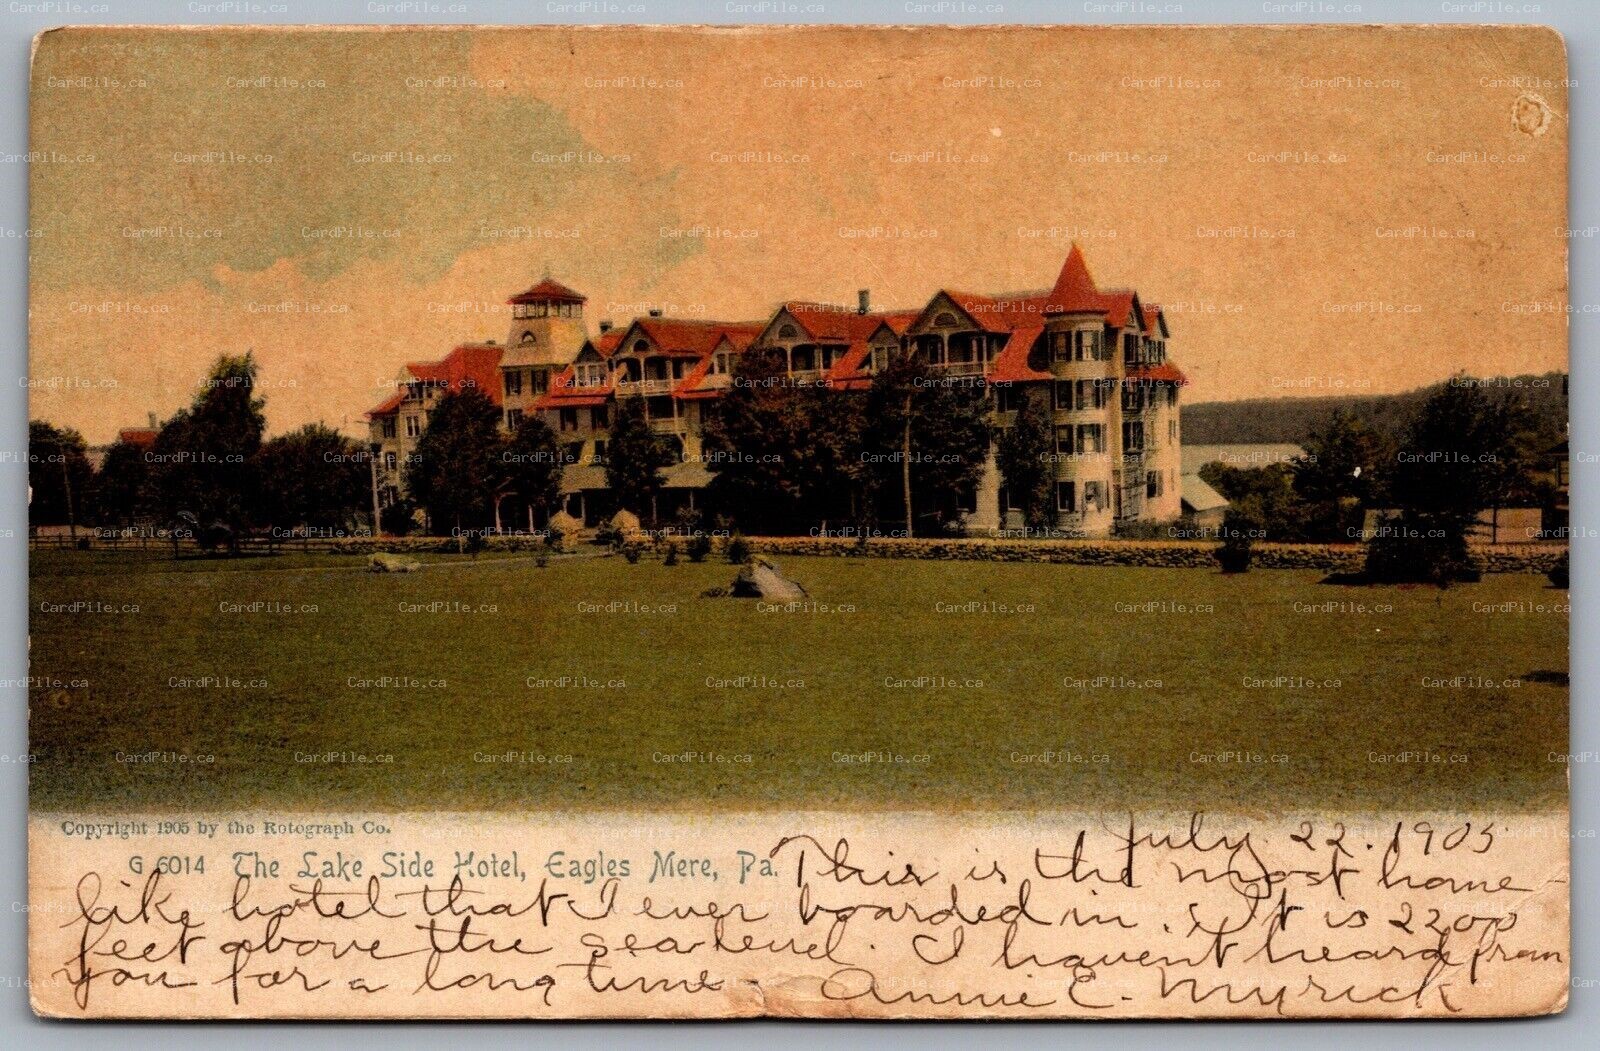 Copyright 1905 by the Rotograph Co.
G 6014 The Lake Side Hotel, Eagles Mere, Pa.
July 22. 1905
This is the most home-
like hotel that I ever boarded in. It is 2200
feet above the sea level. I havent heard from
you for a long time.
Annie E. Myrick
CardPile.ca